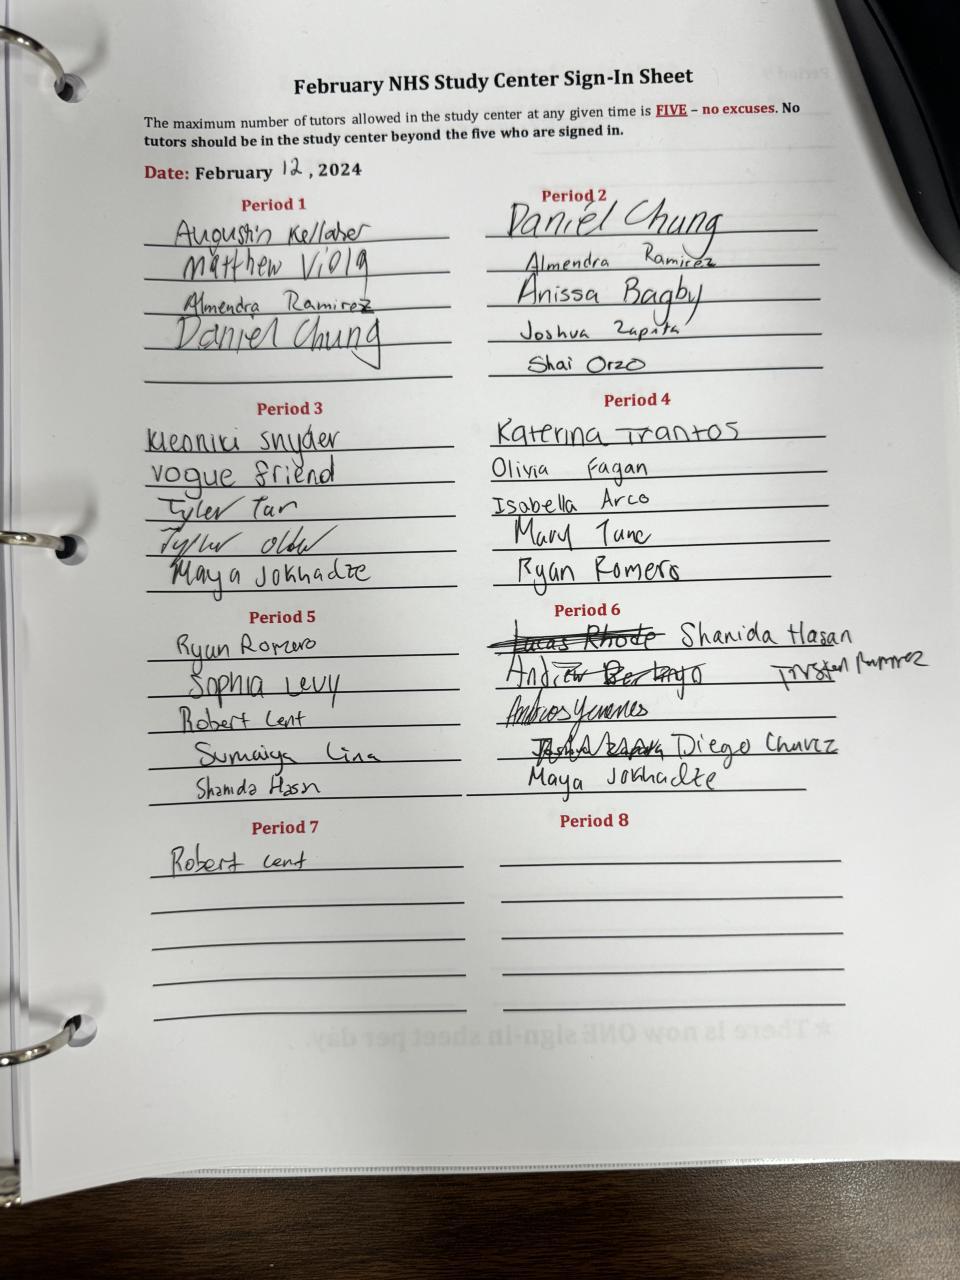 February NHS Study Center Sign-In Sheet
The maximum number of tutors allowed in the study center at any given time is FIVE – no excuses. No
tutors should be in the study center beyond the five who are signed in.
Date: February 12, 2024
Period 1
Augustin Kellaher
Matthew Viola
Almendra Ramirez
Daniel Chung
Period 2
Daniel Chung
Almendra Ramirez
Anissa Bagby
Joshua Zapata
Shai Orzo
Period 3
Kleoniki Snyder
Vogue friend
Tyler Tan
Tyler
Maya Jokhadze
Period 4
Katerina Trantos
Olivia Fagan
Isabella Arco
Mary Tang
Ryan Romero
Period 5
Ryan Romero
Sophia Levy
Robert Lent
Sumaiya Lina
Shanida Hasn
Period 6
Lucas Rhode Shanida Hasan
Andrew Tristen Ramirez
Diego Chavez
Maya Jokhadze
Period 7
Robert Lent
Period 8
* There is now ONE sign-in sheet per day.